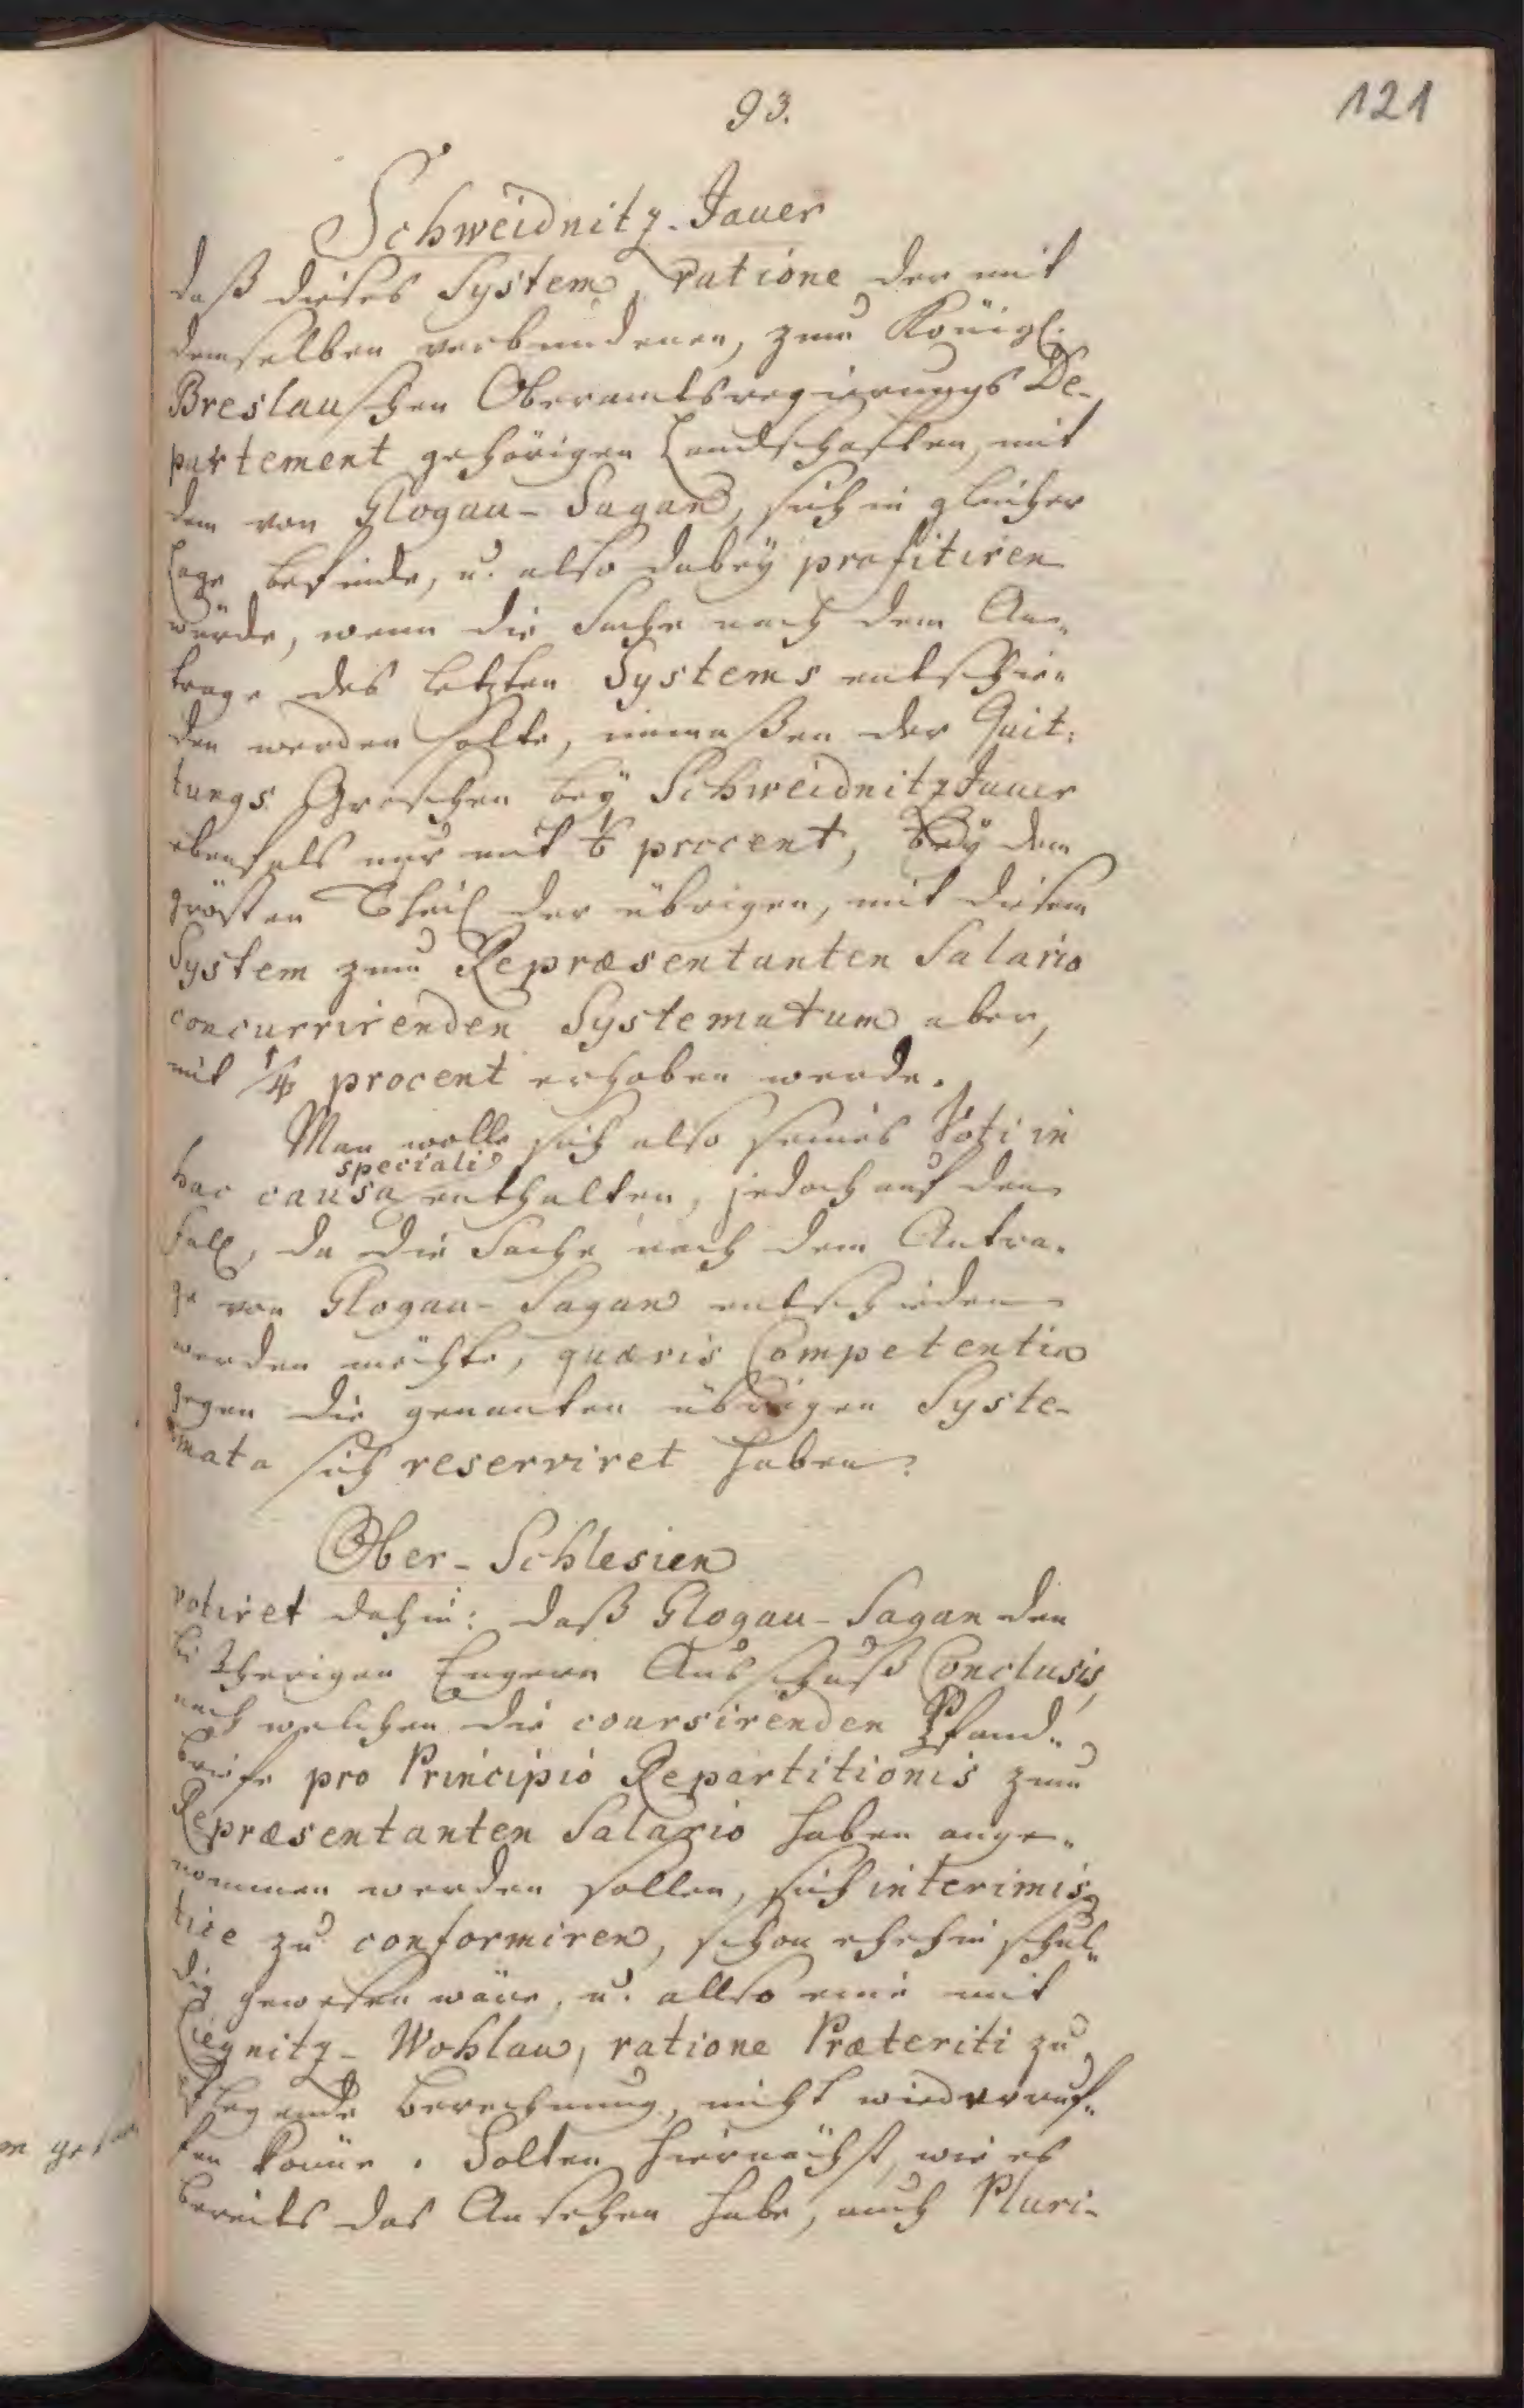 93.
121
Schweidnitz-Jauer
daß dieses System, ratione der mit
demselben verbundenen, zum Königl.
Breslauschen Oberamtsregierungs De-
partement gehörigen Landschaften, mit
dem von Glogau-Sagan, sich in gleicher
Lage befinde, u. also dabeÿ profitiren
würde, wenn die Sache nach dem An-
trage des letzten Systems entschie-
den werden solte, immaßen der Quit-
tungs Groschen beÿ Schweidnitz Jauer
ebenfals nur mit procent, beÿ dem
grösten Theil der übrigen, mit diesem
System zum Repræsentanten Salario
concurrirenden Systematum aber,
mit 1/4 procent erhoben werde.
Man wolle sich also seines Voti in
speciali
hac causa enthalten, jedoch auf den
Fall, da die Sache nach dem Antra-
ge von Glogau-Sagan entschieden
werden möchte, quævis Competentia
gegen die genanten übrigen Syste-
mata sich reserviret haben.
Ober-Schlesien
votiret dahin: daß Glogau-Sagan den
bisherigen Engern Ausschuß Conclusis,
nach welchen die coursirenden Pfand-
briefe pro Principio Repartitionis zum
Repræsentanten Salario haben ange-
nommen werden sollen, sich interimis-
tice zu conformiren, schon ehehin schul-
dig gewesen wäre, u. allso eine mit
Liegnitz-Wohlau, ratione Præteriti zu
pflegende Berechnung, nicht wiederruf-
fen könne. Solten hiernächst, wie es
bereits das Ansehen habe, auch Pluri-